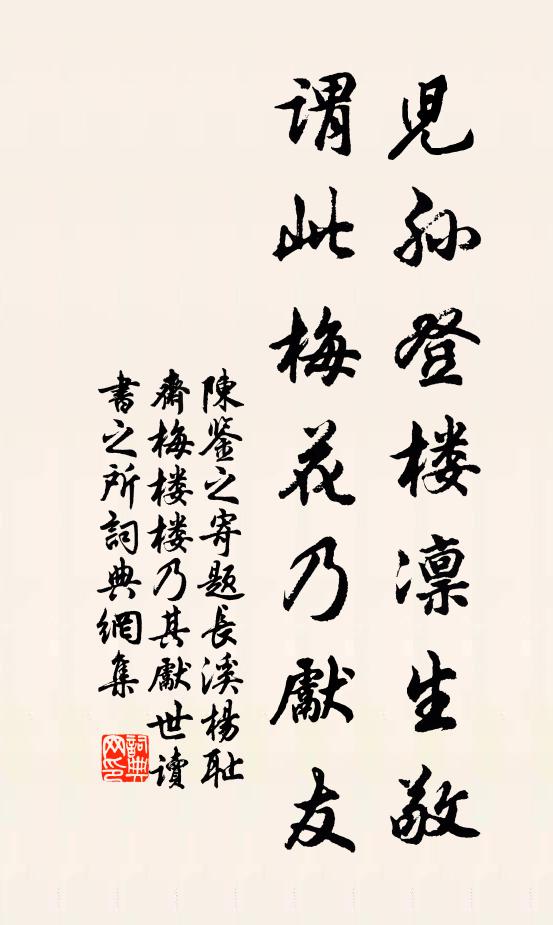 児孙登楼凛生敬
谓此梅花乃獻友
陳鉴之寄题長溪楊耻
齋梅楼楼乃其獻世讀
書之所詞典網集
詞典网印